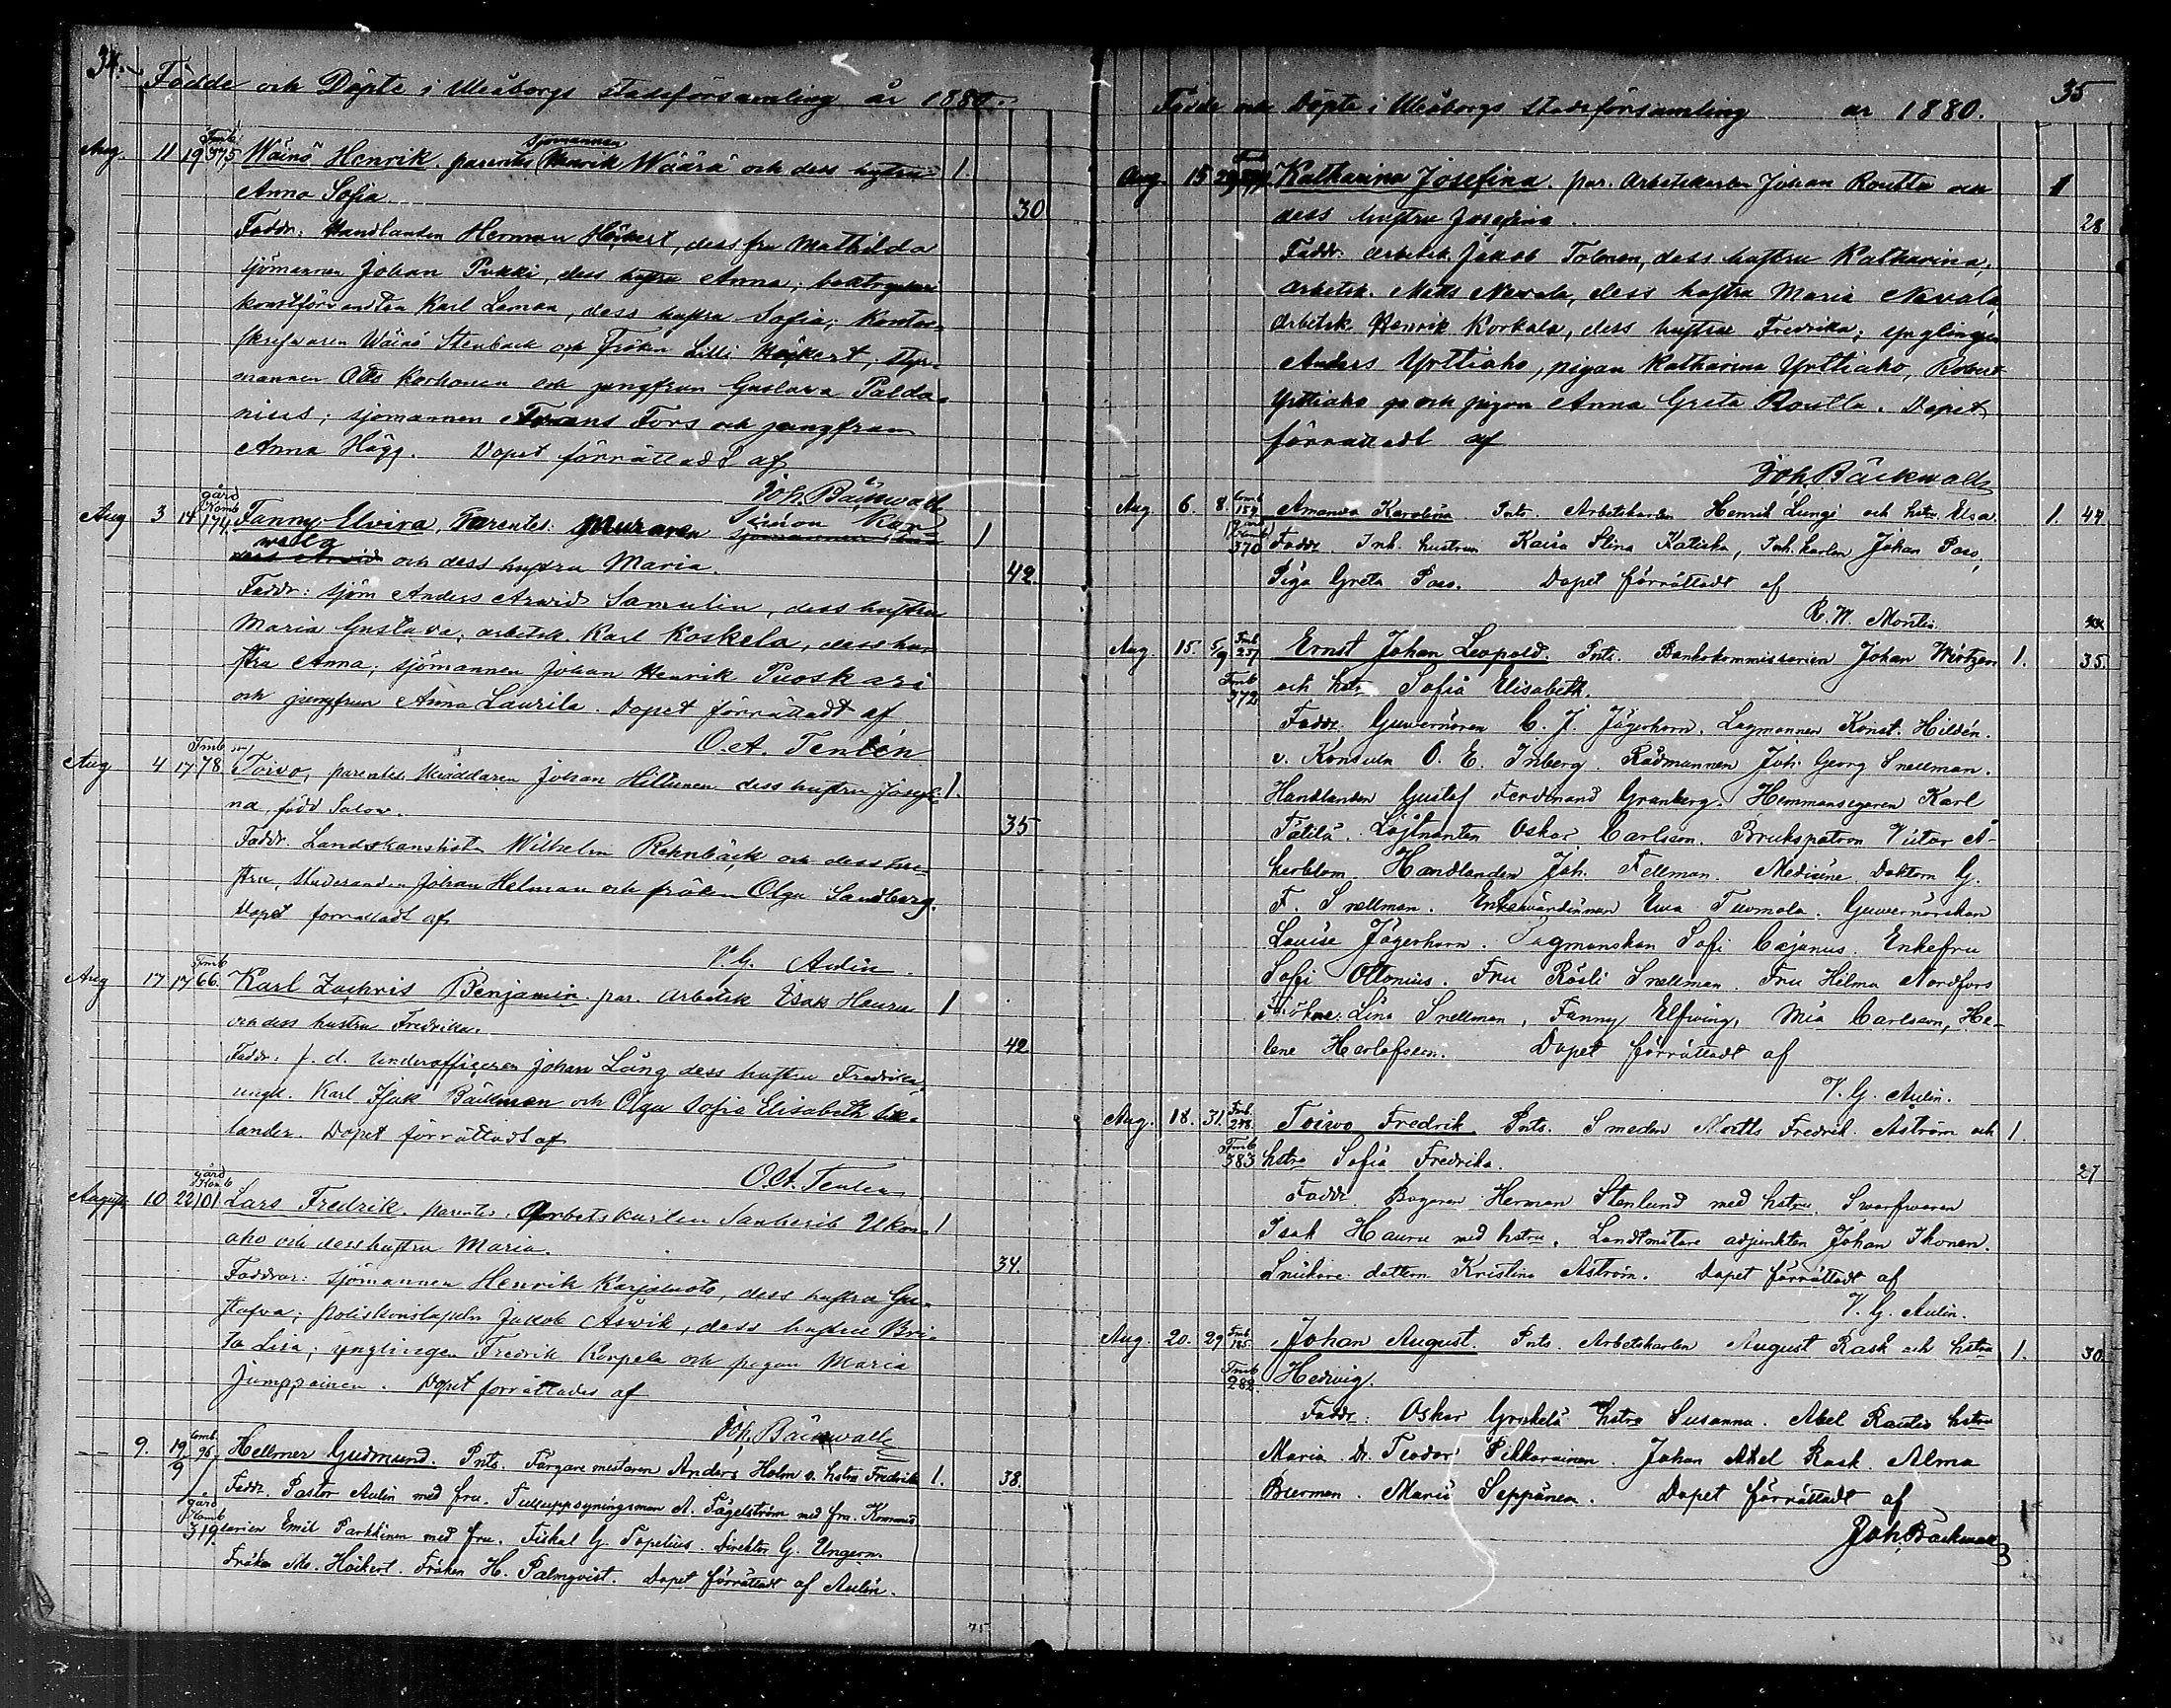 34.
Födde och Döpte i Uleåborgs stadsförsamling år 1880.
Aug. 11 19 Tmb 375 Wäinö Henrik. parentes sjömannen Henrik Wäärä och dess hustru 1.
Anna Sofia 30
Faddr: Handlanden Herman Höckert, dess fru Mathilda
sjömannen Johan Pukki, dess hustru Anna, boktryckeri
konstförvandten Karl Leman, dess hustru Sofia; Kontor-
skrifwaren Wäinö Stenbäck och Fröken Lilli Höckert, styr-
mannen Otto Korhonen och jungfrun Gustava Palda-
nius; sjömannen Frans Fors och jungfrun
Anna Hägg. Dopet förrättadt af
Joh. Bäckwall
Aug 3 14 gård Komb 174 Fanny Elvira, Parentes: Muraren Simon Kar-
wela och dess hustru Maria. 1
42.
Faddr: sjöm Anders Arwid Samulin, dess hustru
Maria Gustava; arbetsk. Karl Koskela, dess hu-
stru Anna; sjömannen Johan Henrik Puoskari
och jungfrun Anna Laurila. Dopet förrättadt af
O. A. Tenlén
Aug 4 17 Tmb 78 Toivo, parentes Skräddaren Johan Hiltunen dess hustru Josefi- 1.
na född Salow. 35
Faddr. Landskanslisten Wilhelm Rehnbäck och dess hu-
stru, studeranden Johan Helman och fröken Olga Sandberg.
Dopet förrättadt af
V. G. Aulin.
Aug 17 17 Tmb 66. Karl Zachris Benjamin par. arbetsk Esak Hauru 1
och dess hustru Fredrika. 42
Faddr: f. d. Underofficeren Johan Lång dess hustru Fredrika,
yngl. Karl Isak Bäckman och Olga Sofia Elisabeth
lander. Dopet förrättadt af
O. A. Tenlén
Augusti 10 22 gård Komb 101 Lars Fredrik. parentes. Arbetskarlen Sanherib Ukon- 1
aho och dess hustru Maria. 34.
Faddrar: sjömannen Henrik Karjaluoto, dess hustru Gu-
stafva; poliskonstapeln Jakob Åswik, dess hustru Bri-
ta Lisa; ynglingen Fredrik Korpela och pigan Maria
Jumppainen. Dopet förrättades af
Joh. Bäckwall
9. 19/9 Komb. 96 Hellmer Gudmund. Prnts. Färgare mestaren Anders Holm o. hstru Fredrika 1. 38.
Faddr. Pastor Aulin med fru. Tulluppsyningsman A. Fågelström med fru. Kommis-
gård Komb 319. sarien Emil Parkkinen med fru. Fiskal G. Topelius. Direktor G. Ungern.
Fröken Höckert. Fröken H. Palmqvist. Dopet förrättadt af Aulin.
75
35
Födde och Döpte i Uleåborgs stadsförsamling år 1880.
Aug 15 Katharina Josefina. par. Arbetskarlen Johan Routtu och 1
dess hustru Josefina. 28
Faddr: arbetsk. Jakob Tolonen, dess hustru Katharina;
arbetsk. Matts Nevala, dess hustru Maria Nevala,
arbetsk. Henrik Korkala, dess hustru Fredrika; ynglingen
Anders Yrttiaho, pigan Katharina Yrttiaho, Robert
Yrttiaho och pigan Anna Greta Routtu. Dopet
förrättadt af
Joh Bäckwall
Aug. 6. 8. Komb 159 Amanda Karolina. Prnts. Arbetskarlen Henrik Lungi och hstr. Elsa. 1. 44
gård Komb 370 Faddr. Inh. hustrun Kaisa Stina Katiska, Inh. karlen Johan Paso,
Piga Greta Paso. Dopet förrättadt af
R. W. Montin.
Aug. 15. 5/9 Fmb 257 Ernst Johan Leopold. Prnts. Bankokommissarien Johan Wirtzen 1. 35.
Fmb 372 och hstr Sofia Elisabeth.
Faddr. Guvernören C. J. Jägerhorn. Lagmannen Konst. Hildén.
v. Konsuln O. E. Inberg. Rådmannen Joh. Georg Snellman.
Handlanden Gustaf Ferdinand Granberg. Hemmansegaren Karl
Tätilä. Löjtnanten Oskar Carlsson. Brukspatron Victor Å-
kerblom. Handlanden Joh. Fellman. Medicine Doktorn G.
F. Snellman. Enkewärdinnan Ewa Tuomola. Guvernörskan
Louise Jägerhorn. Lagmanskan Sofi Cajanus. Enkefru
Sofi Ottonius. Fru Rosli Snellman. Fru Hilma Nordfors
Fröknar: Lina Snellman, Fanny Elfving, Mia Carlsson, He-
lene Herlofsen. Dopet förrättadt af
V. G. Aulin.
Aug. 18. 31. Fmb. 278. Toiwo Fredrik. Prnts. Smeden Matts Fredrik Åström och 1.
Fmb 383 hstru Sofia Fredrika. 27
Faddr. Bagaren Herman Stenlund med hstru. Swarfwaren
Isak Hauru med hstru. Landtmätare adjunkten Johan Ikonen.
Snickare dottern Kristina Åström. Dopet förrättadt af
V. G. Aulin.
Aug. 20. 29. Fmb. 185. Johan August. Prnts. Arbetskarlen August Rask och hstru 1. 30.
Fmb 282. Hedwig.
Faddr: Oskar Griskelä hstru Susanna. Abel Rautio hstru
Maria. Dr. Teodor Pikkarainen. Johan Abel Rask. Alma
Bierman. Maria Seppänen. Dopet förrättadt af
Joh. Bäckwall